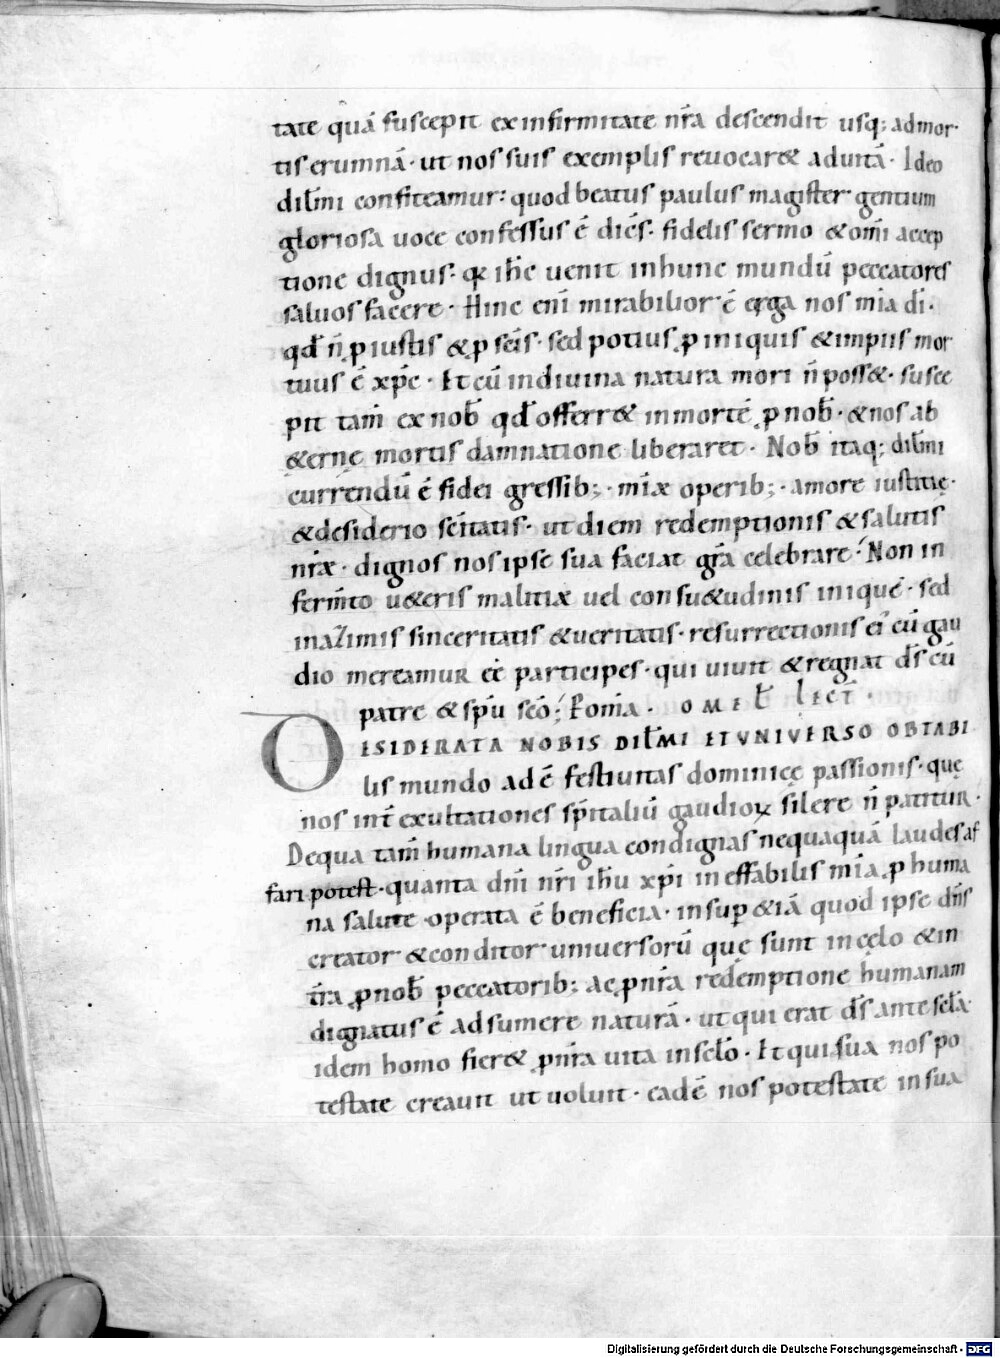 tate quā suscepit ex infirmitate nr̄a descendit usq; ad mor
tis erumnā · ut nos suis exemplis reuocar& ad uitā · Ideo
dilm̄i confiteamur: quod beatus paulus magister gentium
gloriosa uoce confessus ē dicēs · fidelis sermo & om̄i accep
tione dignus · qꝛ ih̄c uenit in hunc mundū peccatores
saluos facere · Hinc eni͞ mirabilior ē erga nos mi͞a di͞ ·
qd̄ n̄ ꝓ iustis & ꝓ sc̄is · sed potius ꝓ iniquis & impiis mor
tuus ē xp̄c · Et cū in diuina natura mori n̄ poss& · susce
pit tam̄ ex nob̄ qd̄ offerr& in mortē ꝓ nob̄ · & nos ab
&ernę mortis damnatione liberaret · Nob̄ itaq; dilm̄i
currendū ē fidei gressib; · mi͞æ operib; · amore iustitię ·
& desiderio sc̄itatis · ut diem redemptionis & salutis
nr̄æ · dignos nos ipse sua faciat gr̄a celebrare · Non in
ferm̄to u&eris malitiæ uel consu&udinis iniquę · sed
in azimis sinceritatis & ueritatis · resurrectionis ei͞ cū gau
dio mereamur ēē participes · qui uiuit & regnat d̄s cū
patre & sp̄u sc̄o; · Fonia · OMEL̄ LECT̄ ·
DESIDERATA NOBIS DILM̄I ET VNIVERSO OBTABI
lis mundo adē festiuitas dominicę passionis · quę
nos int̄ exultationes sp̄italiū gaudioꝝ silere n̄ patitur ·
De qua tam̄ humana lingua condignas nequaquā laudes af
fari potest · quanta dn̄i nr̄i ih̄u xp̄i ineffabilis mi͞a ꝓ huma
na salute operata ē beneficia · insup̄ & iā quod ipse dn̄s
creator & conditor uniuersorū quę sunt in cęlo & in
t̄ra ꝓ nob̄ peccatorib; ac ꝓ nr̄a redemptione humanam
dignatus ē adsumere naturā · ut qui erat d̄s ante sc̄la
idem homo fier& ꝓ nr̄a uita in sc̄lo · Et qui sua nos po
testate creauit ut uoluit · eadē nos potestate in sua
Digitalisierung gefördert durch die Deutsche Forschungsgemeinschaft - DFG